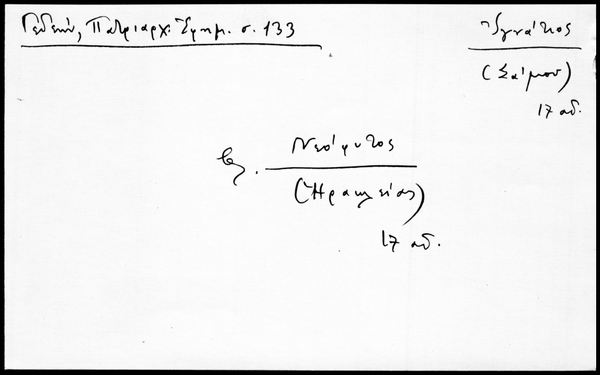 Γεδεών, Πατριαρχ. Εφημ. σ. 133
Ιγνάτιος
(Σάμου)
17 αι.
βλ. Νεόφυτος
(Ηρακλείας)
17 αι.